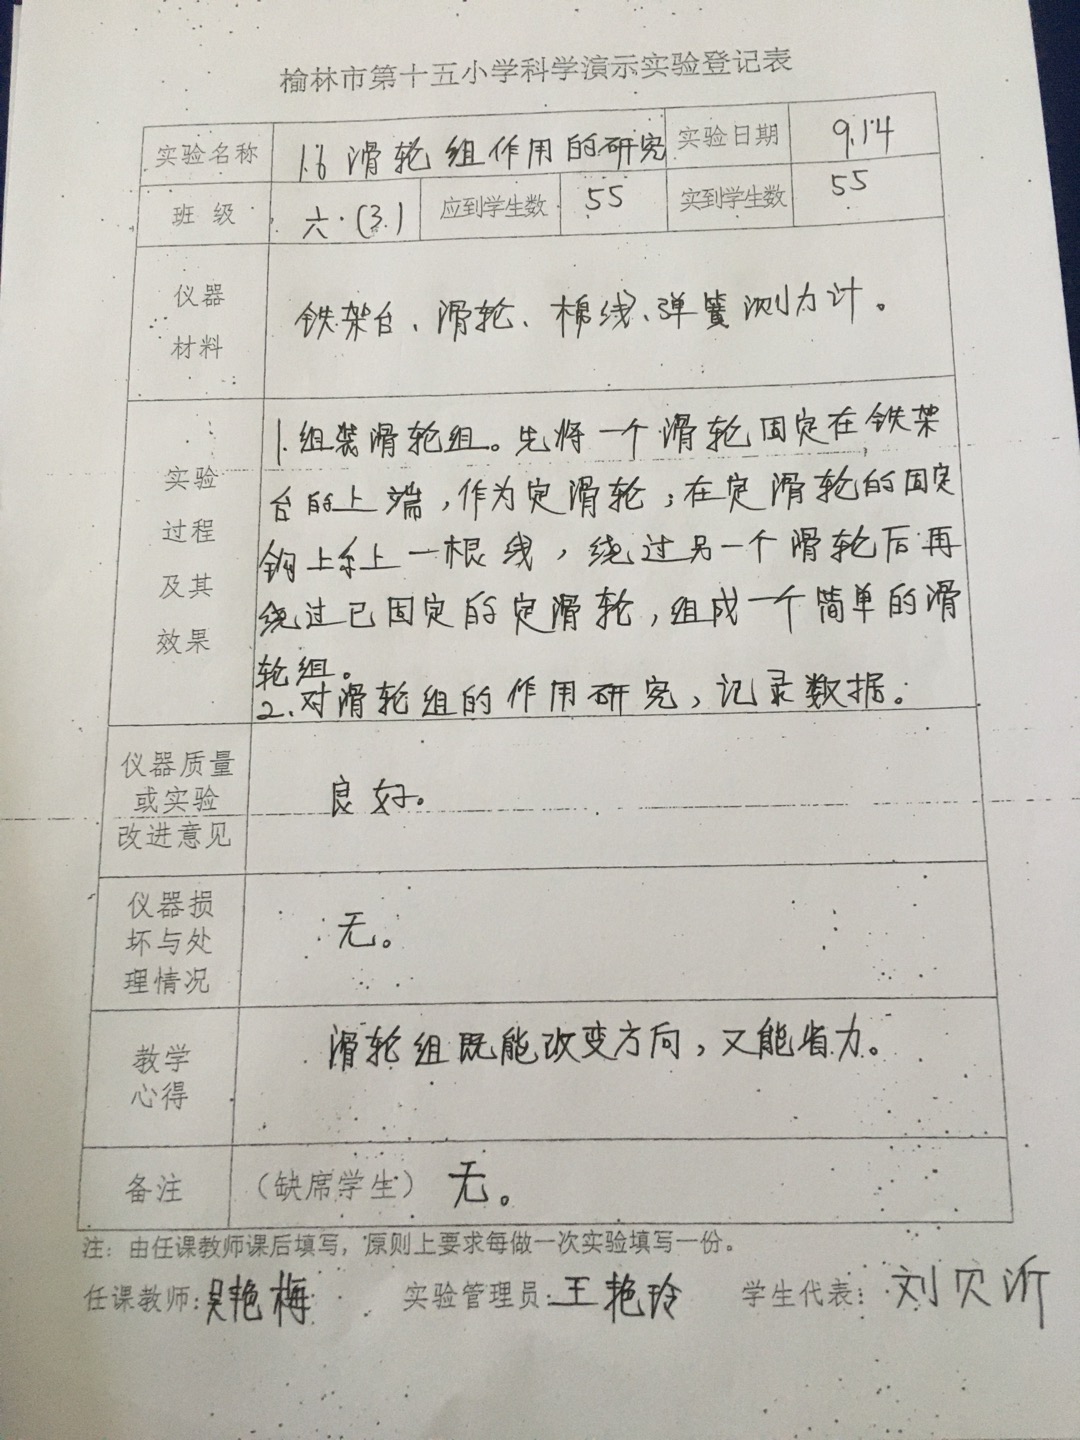 榆林市第十五小学科学演示实验登记表
实验名称 1.6 滑轮组作用的研究 实验日期 9.14
班 级 六.(3) 应到学生数 55 实到学生数 55
仪器
材料
铁架台、滑轮、棉线、弹簧测力计。
实验
过程
及其
效果
1.组装滑轮组。先将一个滑轮固定在铁架
台的上端,作为定滑轮;在定滑轮的固定
钩上系上一根线,绕过另一个滑轮后再
绕过已固定的定滑轮,组成一个简单的滑
轮组。
2.对滑轮组的作用研究,记录数据。
仪器质量
或实验
改进意见
良好。
仪器损
坏与处
理情况
无。
教学
心得
滑轮组既能改变方向,又能省力。
备注 (缺席学生) 无。
注:由任课教师课后填写,原则上要求每做一次实验填写一份。
任课教师:吴艳梅 实验管理员:王艳玲 学生代表:刘贝沂